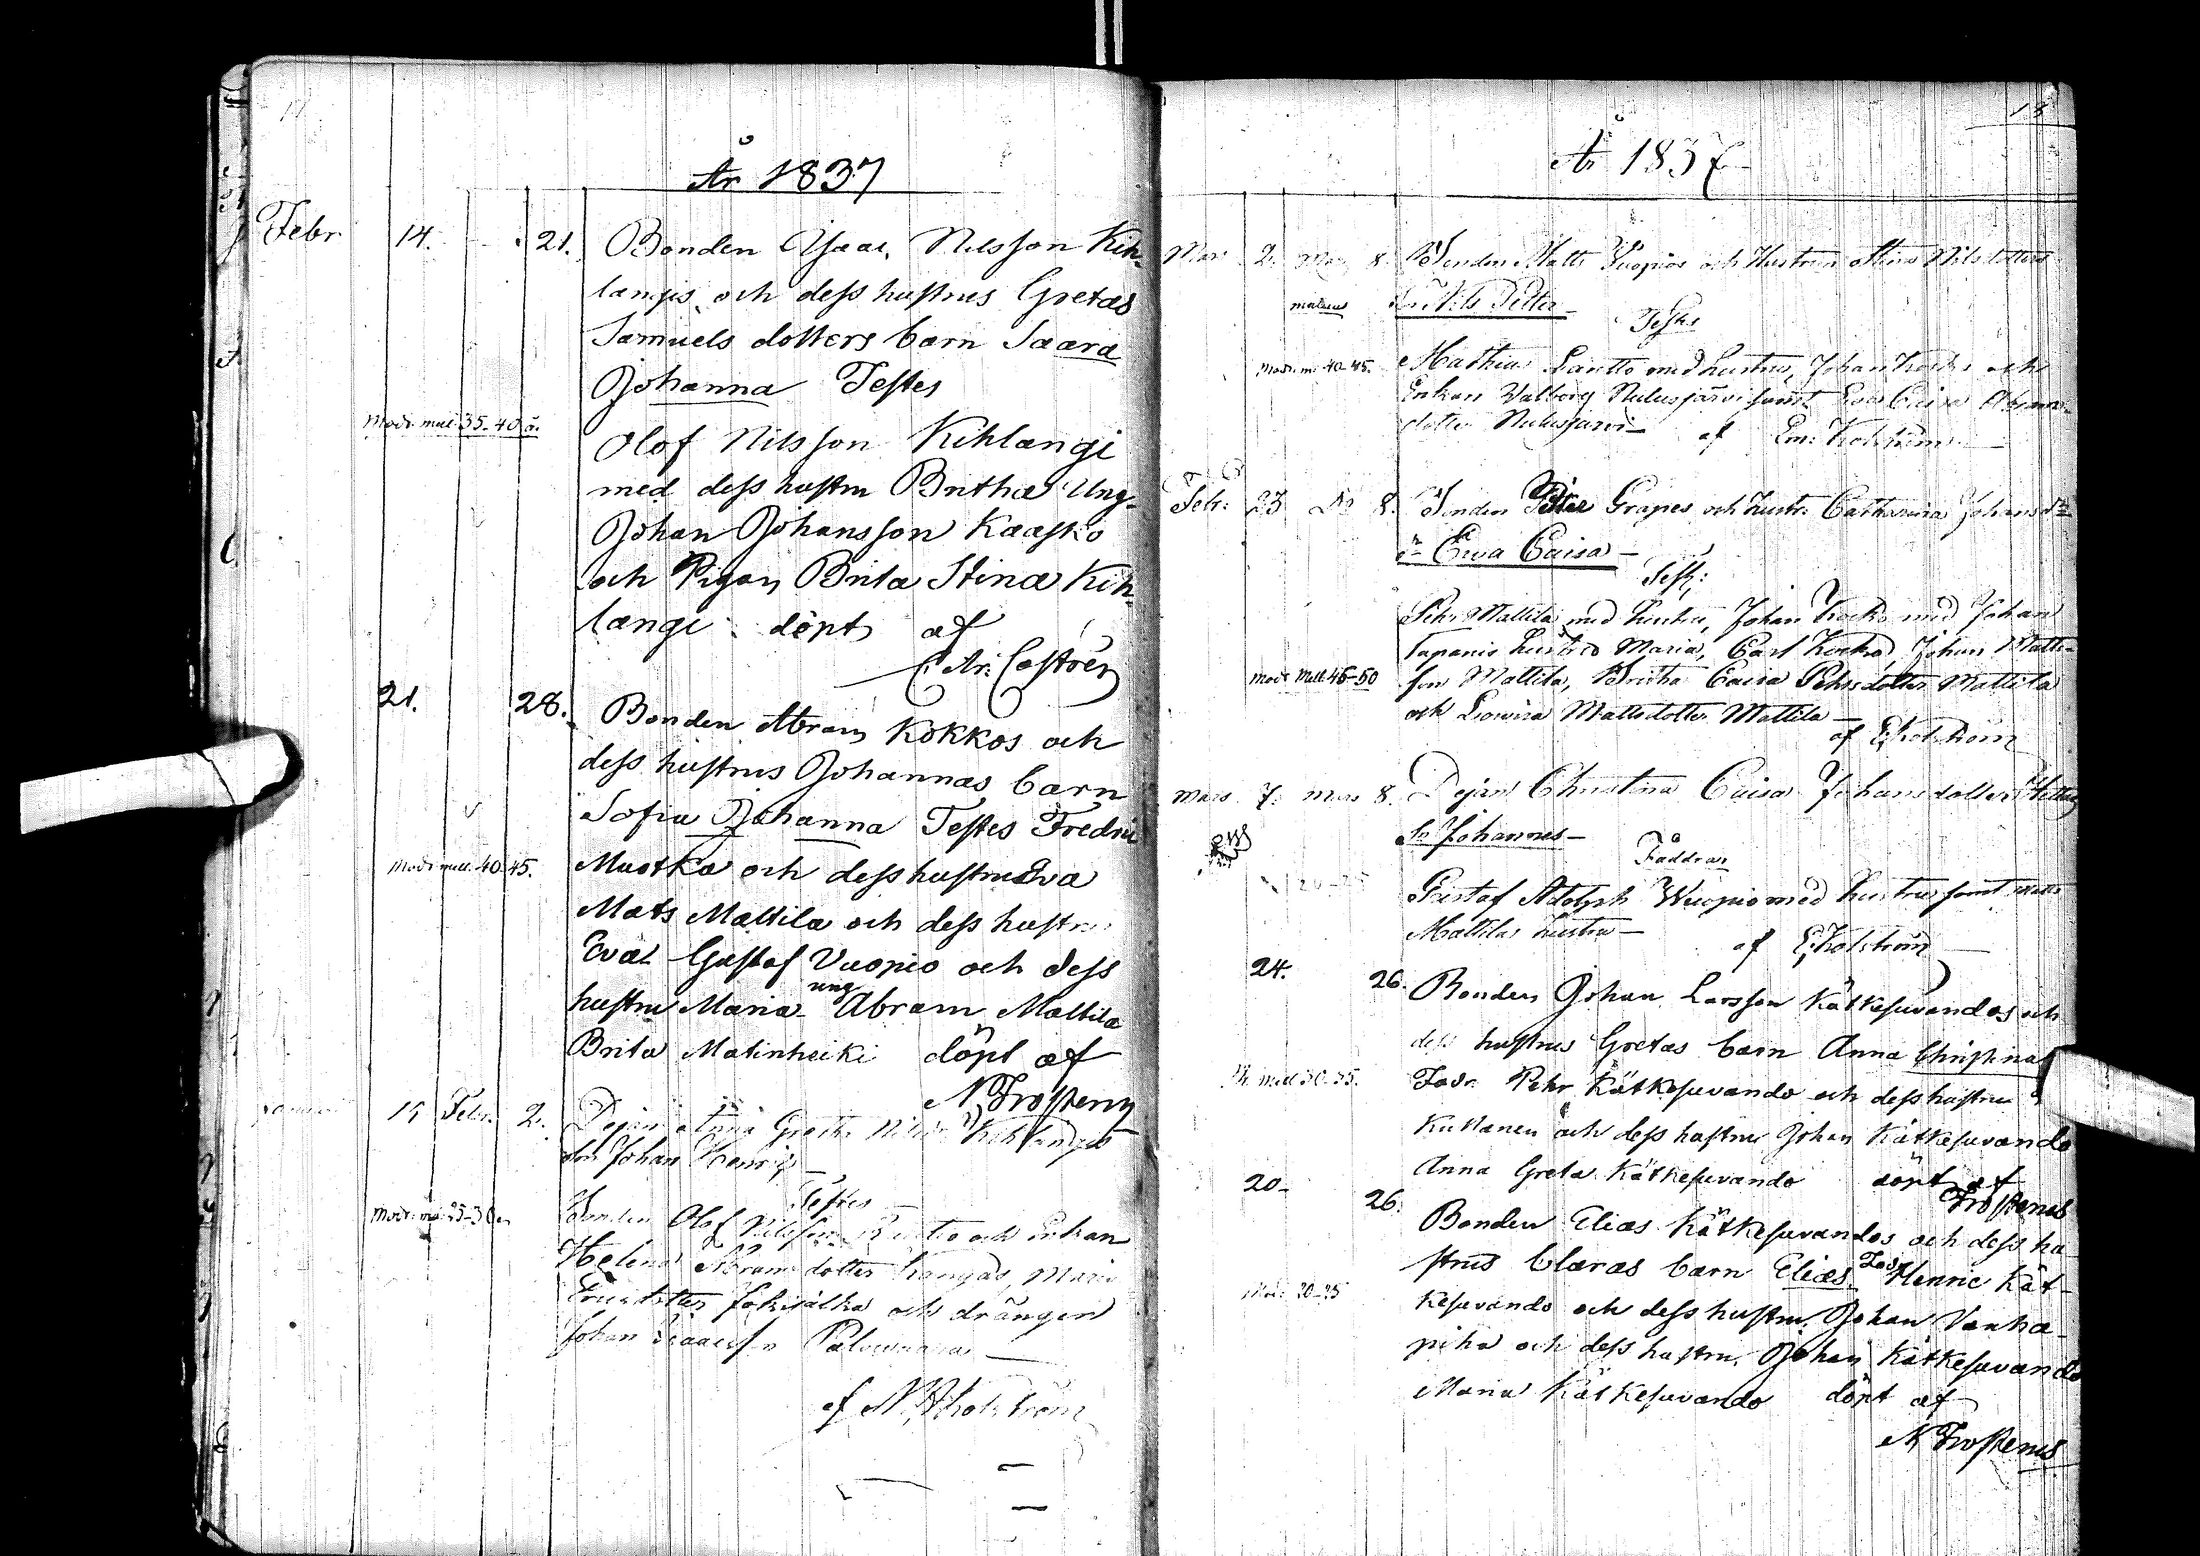 År 1837
Febr. 14. 21. Bonden Isaac Nilsson Kih-
langis och dess hustrus Gretas
Samuels dotters barn Saara
Johanna Testes
Modr. mell. 35-40 å.
Olof Nilsson Kihlangi
med dess hustru Britha Ung-
Johan Johansson Kaasko
och Pigan Brita Stina Kih-
langi döpt af
C. Ar: Castrén
21. 28. Bonden Abram Kokkos och
dess hustrus Johannas barn
Sofia Johanna Testes Fredric
Modr. mell. 40-45. Muotka och dess hustru Eva
Mats Mattila och dess hustru
Eva Gustaf Vuopio och dess
hustru Maria ung Abram Mattila
Brita Matinheiki döpt af
N Frostenus
15 Febr. 2. Pejan Anna Greta Kihlangis
Son Johan Henric
Testes
Modr. 25-30
Bonden Olof Nilsson och Enkan
Helena Abrams dotter Kangas, Maria
Ericsdotter och drängen
Johan Isaacson Palovaara
af
18
År 1837
Mars 2. Mars 8. Bonden Matts Vuopios och Hustrun Stina Nilsdotters
Sn Nils Petter
Testes
Modr. 40-45. Mathias Lantto med hustru, Johan och
Enkan Walborg samt Eva Caisa Abrams-
dotter af
Febr: 23 Do 8. Bonden Peter Grapes och hustr: Catharina Johansdr
dr Ewa Caisa
Test:
Pehr Mattila med hustru, Johan Kocko med Johan
Tapanis hustru Maria, Carl Kocko, Johan Matts-
Modr Mell. 45-50 son Mattila, Britha Caisa Pehrsdotter Mattila
och Lovisa Mattsdotter Mattila
af E. Kolström
Mars 7. Mars 8. Pejan Christina Caisa Johansdotters
Sn Johannes
Faddrar
Gustaf Adolph Wuopio med hustru samt Matts
Mattilas hustru
af E. Kolström
24. 26. Bonden Johan Larsson Kätkesuvandos och
dess hustrus Gretas barn Anna Christina
mell 30-35. Fadr. Pehr Kätkesuvando och dess hustru
och dess hustru Johan Kätkesuvando
Anna Greta Kätkesuvando döpt af
Frostenus
20- 26. Bonden Elias Kätkesuvandos och dess hu-
strus Claras barn Elias. Fadr Henric Kät-
20-25 kesuvando och dess hustru, Johan Vanha-
piha och dess hustru, Johan Kätkesuvando
Maria Kätkesuvando döpt af
N Frostenus